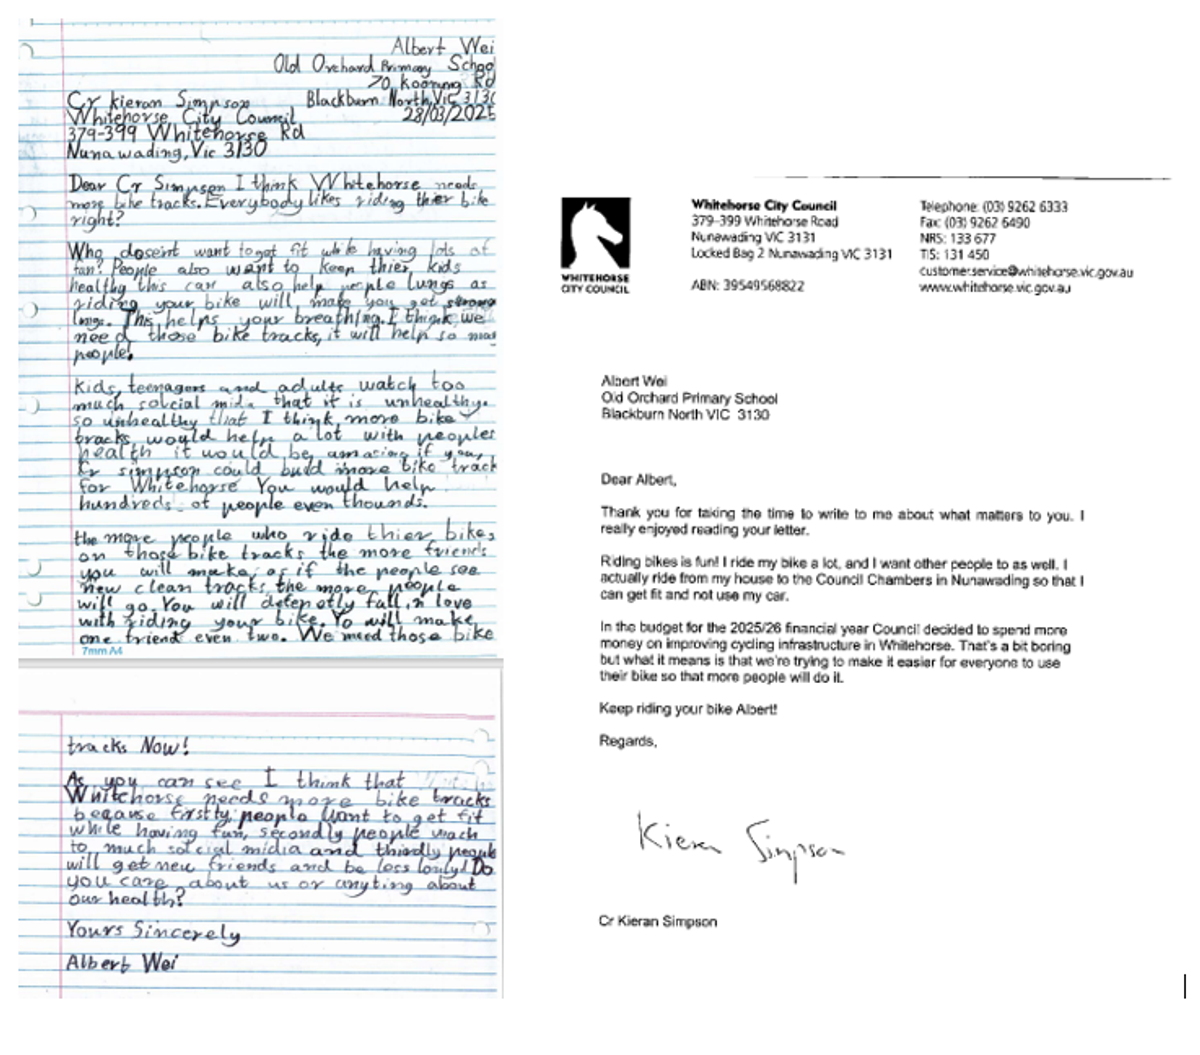 Albert Wei
Old Orchard Primary School
70 Koonung Rd
Blackburn North, Vic 3130
28/03/2025
Cr Kieran Simpson
Whitehorse City Council
379-399 Whitehorse Rd
Nunawading, Vic 3130
Dear Cr Simpson I think Whitehorse needs
more bike tracks. Everybody likes riding thier bike
right?
Who doseint want to get fit while having lots of
fun? People also want to keep thier kids
healthy this can also help people lungs as
riding your bike will make you get strong
lungs. This helps your breathing. I think we
need those bike tracks, it will help so
people!
Kids, teenagers and adults watch too
much solcial that it is unhealthy.
so unhealthy that I think more bike
tracks would help a lot with peoples
health it would be amazing if you,
Cr simpson could build more bike track
for Whitehorse You would help
hundreds of people even thounds.
the more people who ride thier bikes
on those bike tracks the more friends
you will make, as if the people see
new clean tracks, the more people
will go. You will defenotly fall in love
with riding your bike. Yo will make
one friend even two. We need those bike
7mm A4
tracks Now!
As you can see I think that
Whitehorse needs more bike tracks
because firstly, people want to get fit
while having fun, secondly people wach
to much solcial midia and thirdly people
will get new friends and be less lonly! Do
you care about us or anyting about
our health?
Yours Sincerely
Albert Wei
WHITEHORSE
CITY COUNCIL
Whitehorse City Council
379-399 Whitehorse Road
Nunawading VIC 3131
Locked Bag 2 Nunawading VIC 3131
ABN: 39549568822
Telephone: (03) 9262 6333
Fax: (03) 9262 6490
NRS: 133 677
TIS: 131 450
customer.service@whitehorse.vic.gov.au
www.whitehorse.vic.gov.au
Albert Wei
Old Orchard Primary School
Blackburn North VIC 3130
Dear Albert,
Thank you for taking the time to write to me about what matters to you. I
really enjoyed reading your letter.
Riding bikes is fun! I ride my bike a lot, and I want other people to as well. I
actually ride from my house to the Council Chambers in Nunawading so that I
can get fit and not use my car.
In the budget for the 2025/26 financial year Council decided to spend more
money on improving cycling infrastructure in Whitehorse. That's a bit boring
but what it means is that we're trying to make it easier for everyone to use
their bike so that more people will do it.
Keep riding your bike Albert!
Regards,
Kieran Simpson
Cr Kieran Simpson